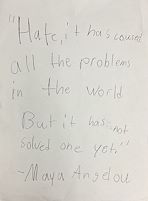 "Hate, it has caused
all the problems
in the world
But it has not
solved one yet."
-Maya Angelou